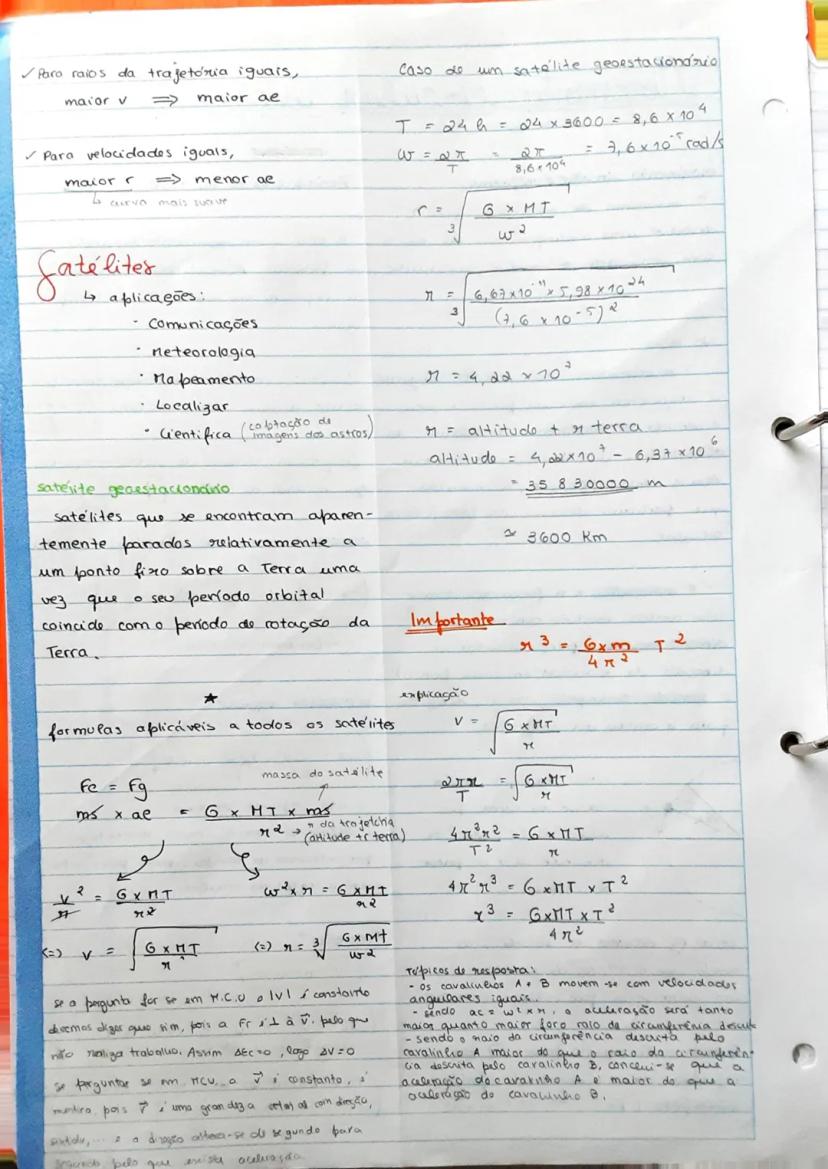 ✓ Para raios da trajetória iguais,
maior v ⇒ maior ae
✓ Para velocidades iguais,
maior r ⇒ menor ae
↳ curva mais suave
Satélites
↳ aplicações:
· Comunicações
· Meteorologia
· Mapeamento
· Localizar
· Científica (captação de
imagens dos astros)
satélite geoestacionário
satélites que se encontram aparen-
temente parados relativamente a
um ponto fixo sobre a Terra uma
vez que o seu período orbital
coincide com o período de rotação da
Terra.
★
formulas aplicáveis a todos os satélites
Fc = Fg
massa do satélite
ms × ae = G × MT × ms / r²
→ r da trajetória
(altitude + r terra)
v²/r = G × MT / r²
w² × r = G × MT / r²
(=) v = √(G × MT / r)
(=) r = ³√(G × Mt / w²)
se a pergunta for se em M.C.U o |v| é constante
devemos dizer que sim, pois a Fr é ⊥ à v⃗. pelo que
não realiza trabalho. Assim ΔEc = 0, logo ΔV = 0
se perguntar se em MCU, a v⃗ é constante, é
mentira, pois v⃗ é uma grandeza vetorial com direção,
sentido,... e a direção altera-se de segundo para
segundo, pelo que exista aceleração
Caso de um satélite geoestacionário
T = 24 h = 24 × 3600 = 8,6 × 10⁴
w = 2π/T = 2π / 8,6×10⁴ = 7,6 × 10⁻⁵ rad/s
r = ³√(G × MT / w²)
r = ³√(6,67×10⁻¹¹ × 5,98 × 10²⁴ / (7,6 × 10⁻⁵)²)
r = 4,22 × 10⁷
r = altitude + r terra
altitude = 4,22×10⁷ − 6,37 × 10⁶
= 35 830000 m
≃ 3600 Km
Importante
r³ = G×m / 4π² T²
explicação
v = √(G × MT / r)
2πr / T = √(G × MT / r)
4π²r² / T² = G × MT / r
4π²r³ = G × MT × T²
r³ = G×MT×T² / 4π²
Tópicos de resposta:
- os cavalinhos A e B movem-se com velocidades
angulares iguais.
- sendo ac = w² × r, a aceleração será tanto
maior quanto maior for o raio da circunferência descrita
- sendo o raio da circunferência descrita pelo
cavalinho A maior do que o raio da circunferên-
cia descrita pelo cavalinho B, conclui-se que a
aceleração do cavalinho A é maior do que a
aceleração do cavalinho B.